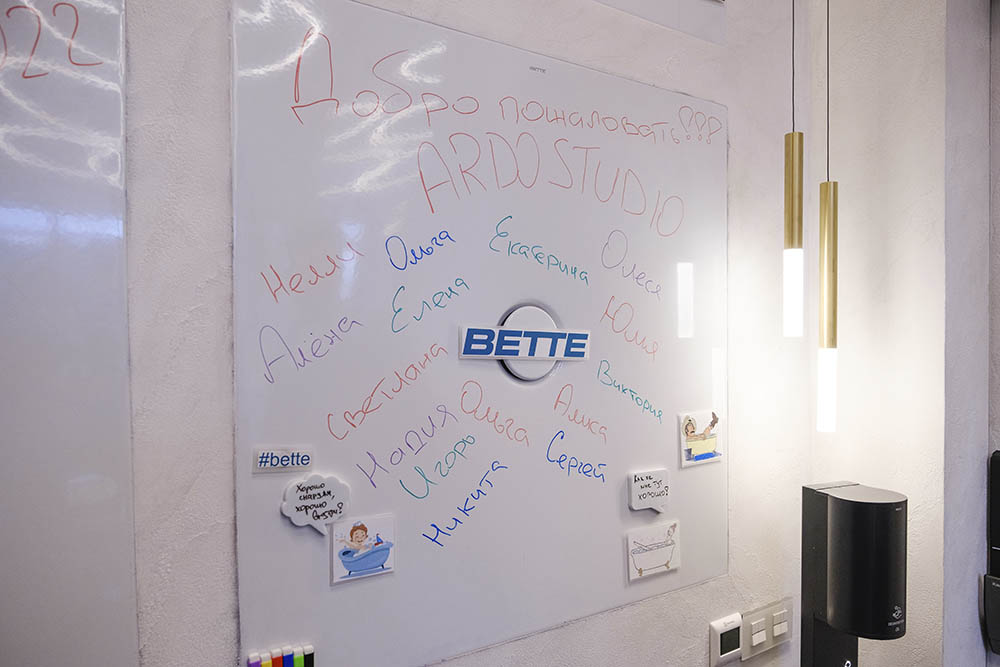 022
BETTE
Добро пожаловать!!!
ARDO STUDIO
Нелли Ольга Екатерина Олеся
Алёна Елена Юлия
BETTE
Светлана Виктория
Надия Ольга Алиса
Игорь Сергей
Никита
#bette
Хорошо
снаружи,
хорошо
внутри?
хорошо?